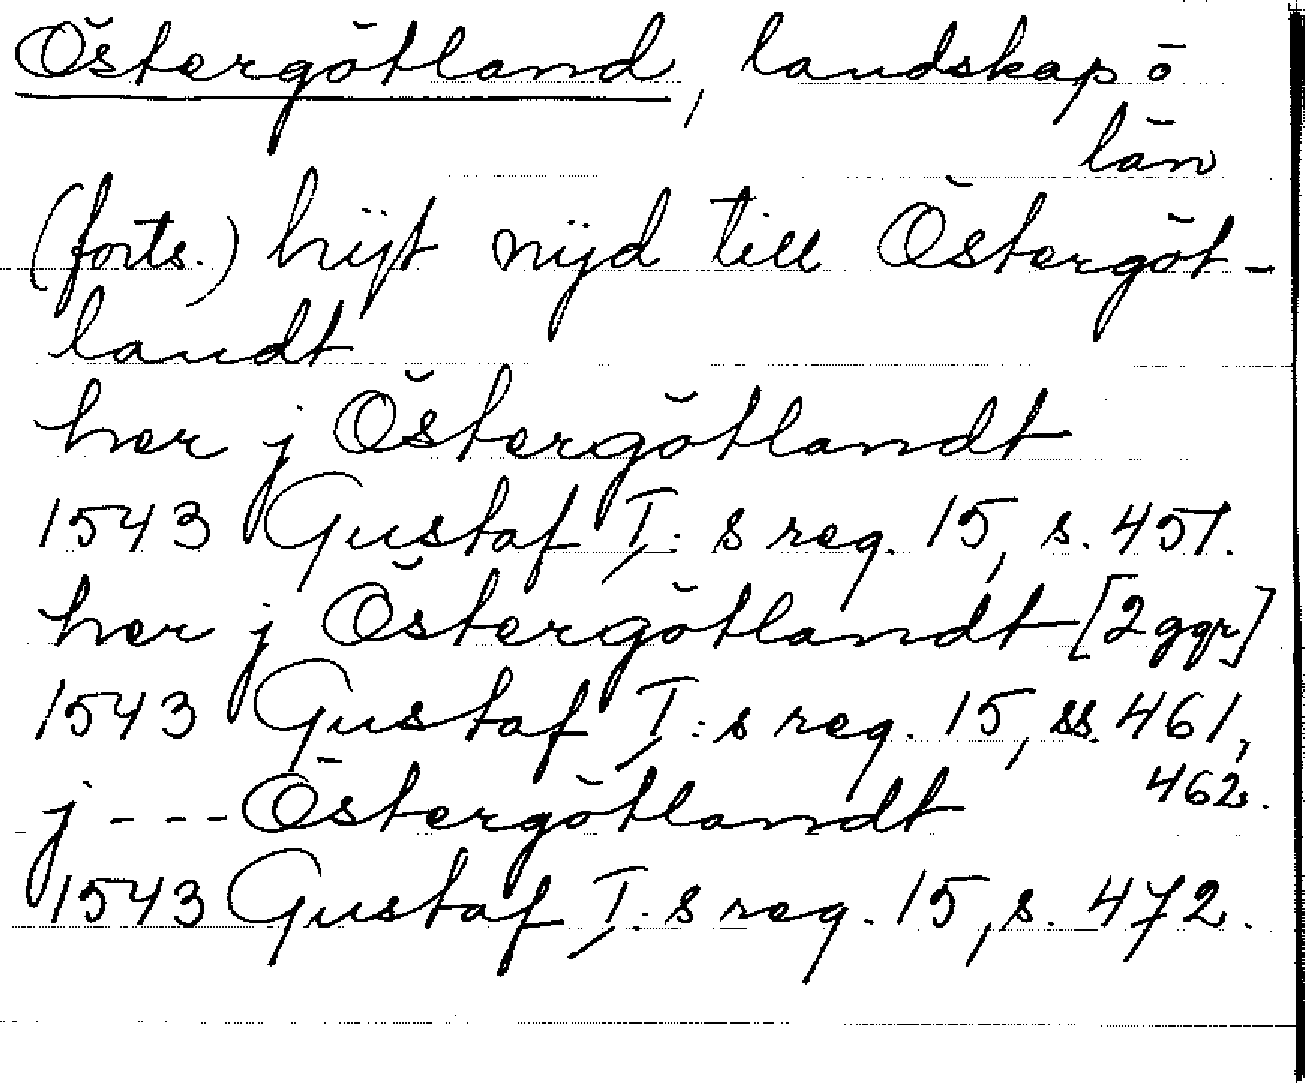 Östergötland, landskap o
län
(forts.) hijt nijd till Östergöt-
landt
her j Östergötlandt
1543 Gustaf I:s reg. 15, s. 457.
her j Östergötlandt [2 ggr]
1543 Gustaf I:s reg. 15, ss. 461,
462.
j --- Östergötlandt
1543 Gustaf I:s reg. 15, s. 472.